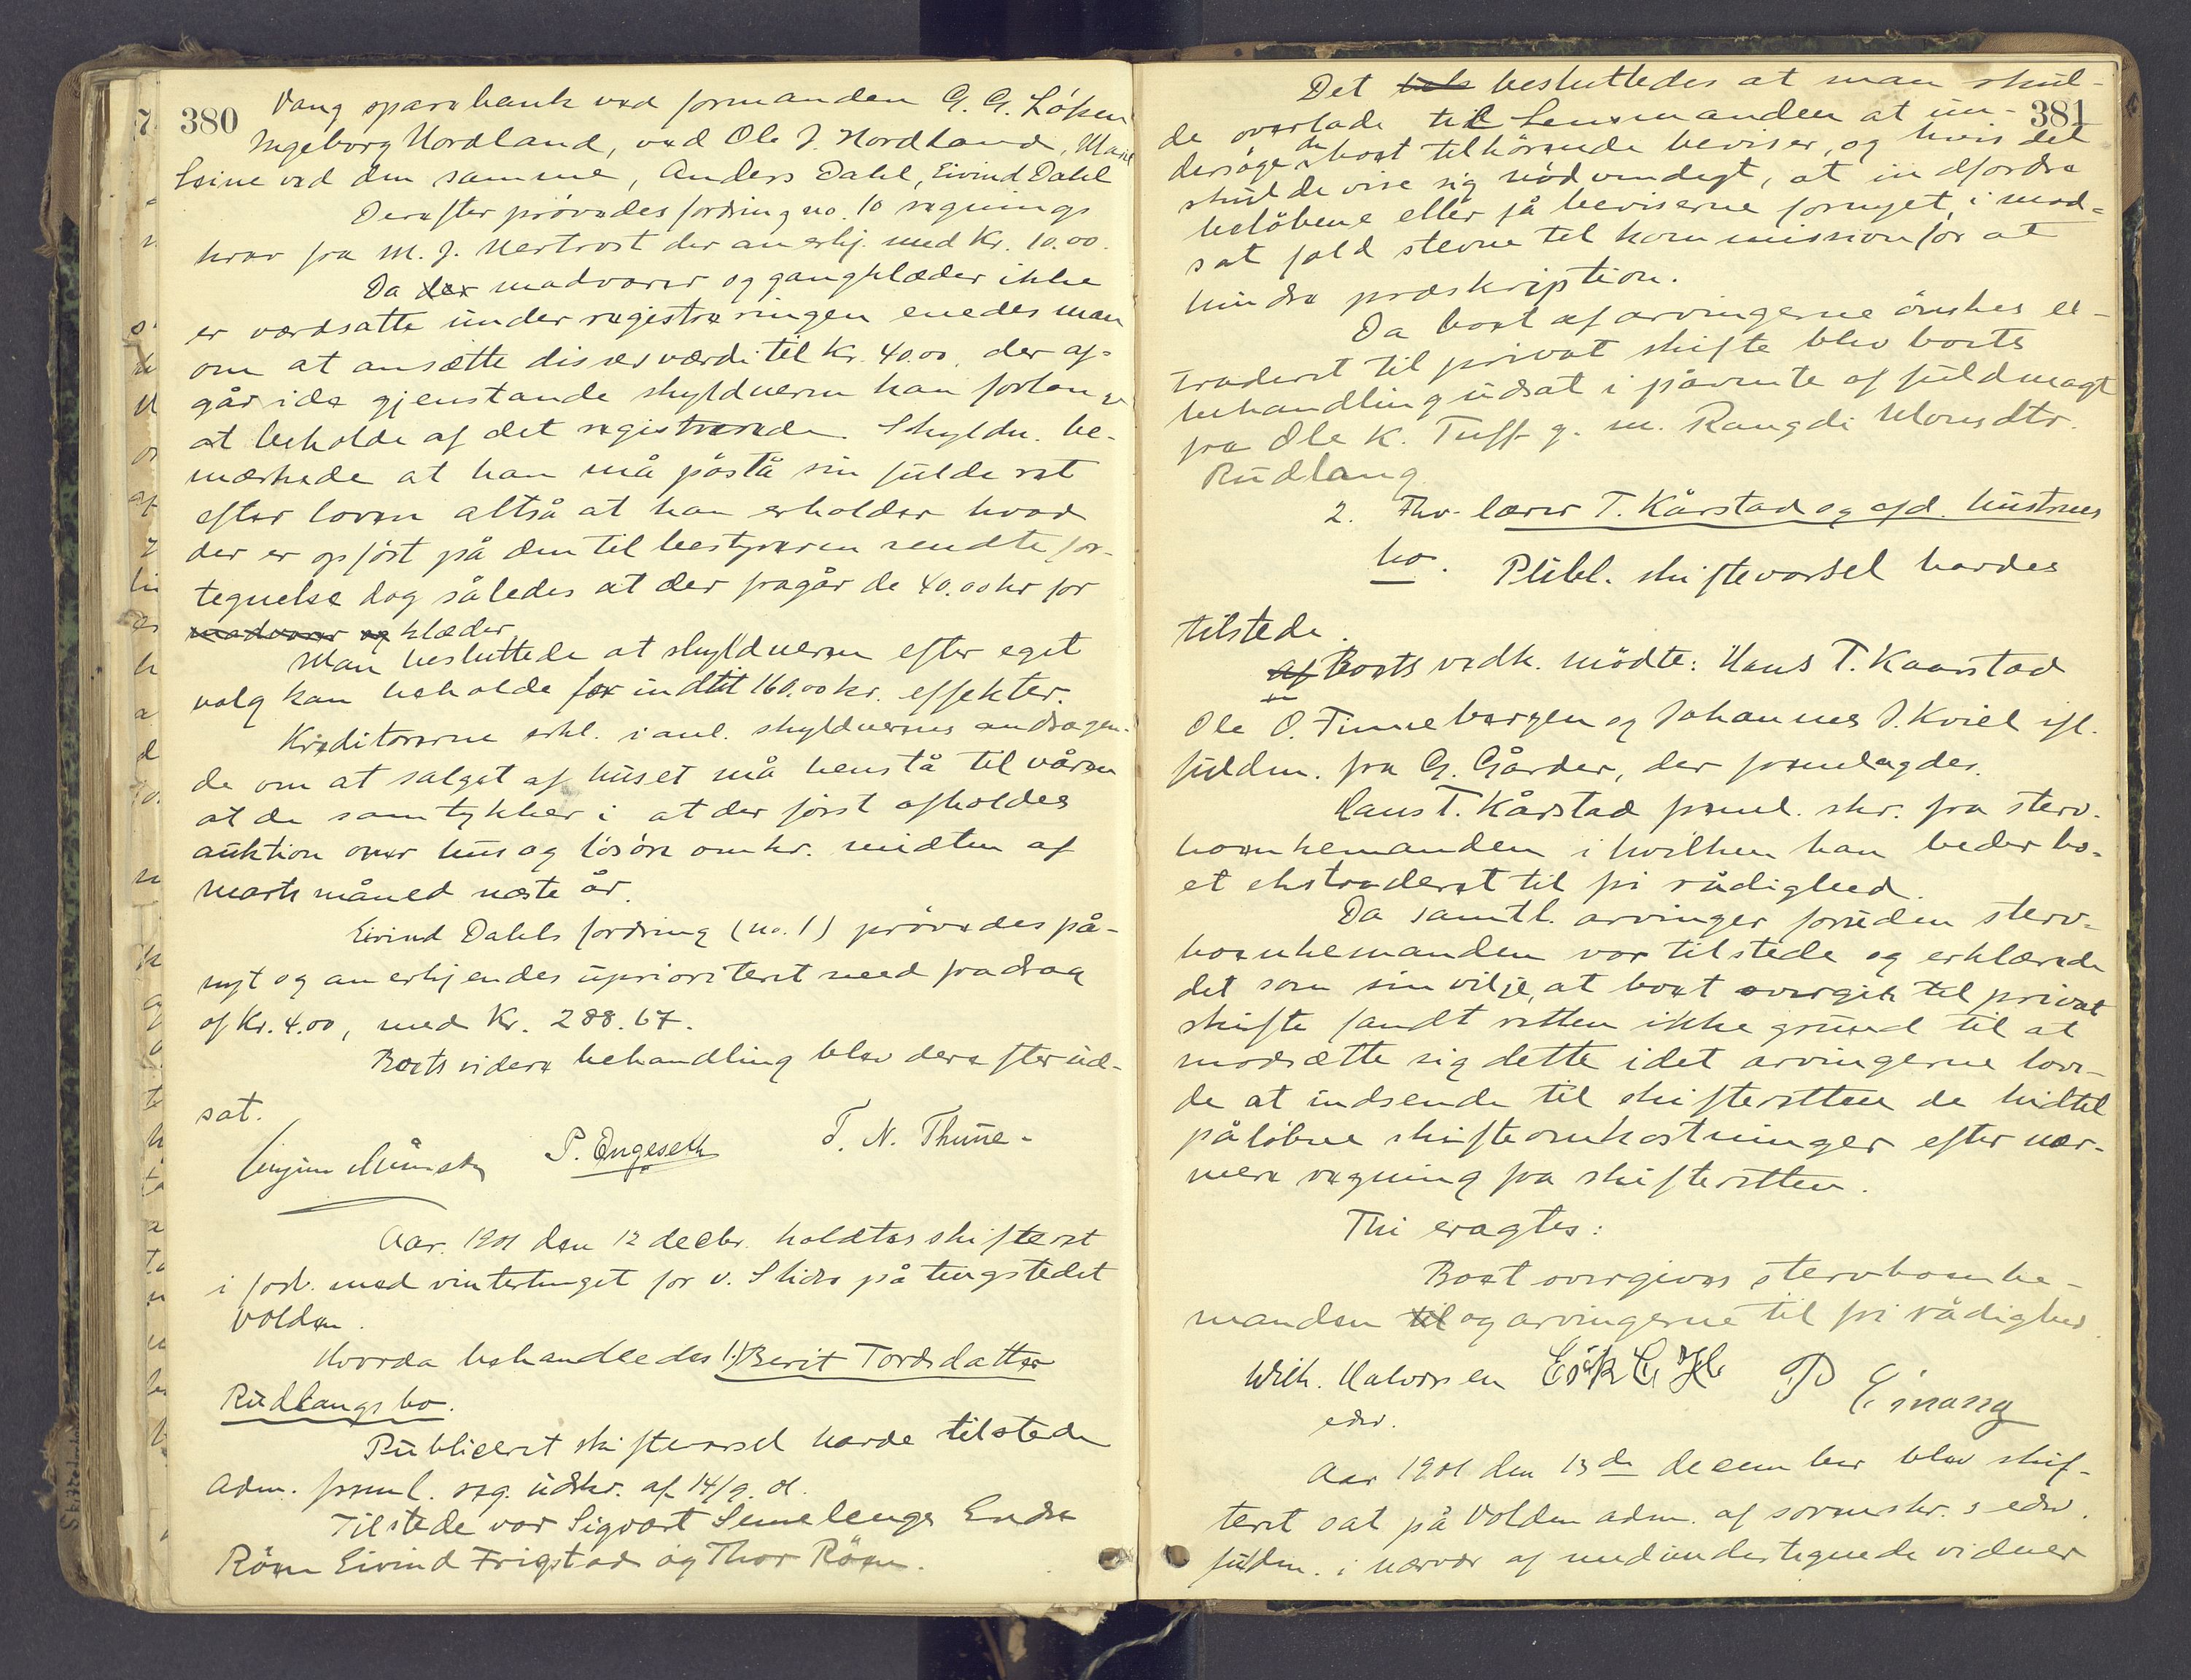 380
Vang sparebank ved formanden G. G. Løken
Ingeborg Nordland, ved Ole J. Nordland, Mari
Leine ved den samme, Anders Dahl, Eivind Dahl
Derefter prøvedes fordring no. 10 regnings
krav fra M. J. Hertrost der anerkj. med Kr. 10.00.
Da der madvarer og gangklæder ikke
er værdsatte under registreringen enedes man
om at ansætte disses værdi til Kr. 40.00. der af-
går i de gjenstande skyldneren kan forlange
at beholde af det registrerede. Skyldn. be-
mærkede at han må påstå sin fulde ret
efter loven altså at han erholder hvad
der er opført på den til bestyreren sendte for-
tegnelse dog således at der fragår de 40.00 kr for
madvarer og klæder
Man besluttede at skyldneren efter eget
valg kan beholde for indtil 160.00 kr. effekter.
Kreditorerne erkl. i anl. skyldnerens andragen-
de om at salget af huset må henstå til våren
at de samtykker i at der først afholdes
auktion over hus og løsøre omkr. midten af
marts måned næste år.
Eivind Dahls fordring (no. 1) prøvedes på-
nyt og anerkjendes uprioriteret med fradrag
af Kr. 4.00, med Kr. 288.67.
Boets videre behandling blev derefter ud-
sat.
P. Engeseth T. N. Thune.
Aar 1901 den 12 decbr. holdtes skifteret
i forb. med vintertinget for v. Slidre på tingstedet
Volden.
Hvorda behandledes 1.) Berit Tordsdatter
Rudlangs bo.
Publiceret skiftevarsel havde tilstede
Adm. freml. reg. udskr. af 14/9. d.
Tilstede var Sigvart Semeleng Endre
Røen Eivind Frigstad og Thor Røen.
381
Det besluttedes at man skul-
de overlade til Lensmanden at un-
dersøge de boet tilhørende beviser, og hvis det
skulde vise sig nødvendigt, at indfordre
beløbene eller få beviserne fornyet, i mod-
sat fald stevne til kommission for at
hindre præskription.
Da boet af arvingerne ønskes ex-
traderet til privat skifte blev boets
behandling udsat i påvente af fuldmagt
fra Ole K. Tuff g. m. Rangdi Monsdtr.
Rudlang
2. Fhv. lærer T. Kårstad og afd. hustrues
bo. Publ. skiftevarsel havdes
tilstede.
af Boets vedk. mødte: Hans T. Kaarstad
Ole O. Finneborgen og Johannes J. Kviel ifl.
fuldm. fra G. Gårder, der fremlagdes.
Hans T. Kårstad freml. skr. fra sterv-
boenkemanden i hvilken han beder bo-
et ekstraderet til fri rådighed.
Da samtl. arvinger foruden sterv-
boenkemanden var tilstede og erklærede
det som sin vilje, at boet overgik til privat
skifte fandt retten ikke grund til at
modsætte sig dette idet arvingerne love-
de at indsende til skifteretten de hidtil
påløbne skifteomkostninger efter nær-
mere regning fra skifteretten.
Thi eragtes:
Boet overgives stervboenke-
manden til og arvingerne til fri rådighed.
Wilh. Halvorsen P Einang
edsv.
Aar 1901 den 13de december blev skif-
teret sat på Volden adm. af sorenskr. s edsv.
fuldm. i nærvær af medundertegnede vidner